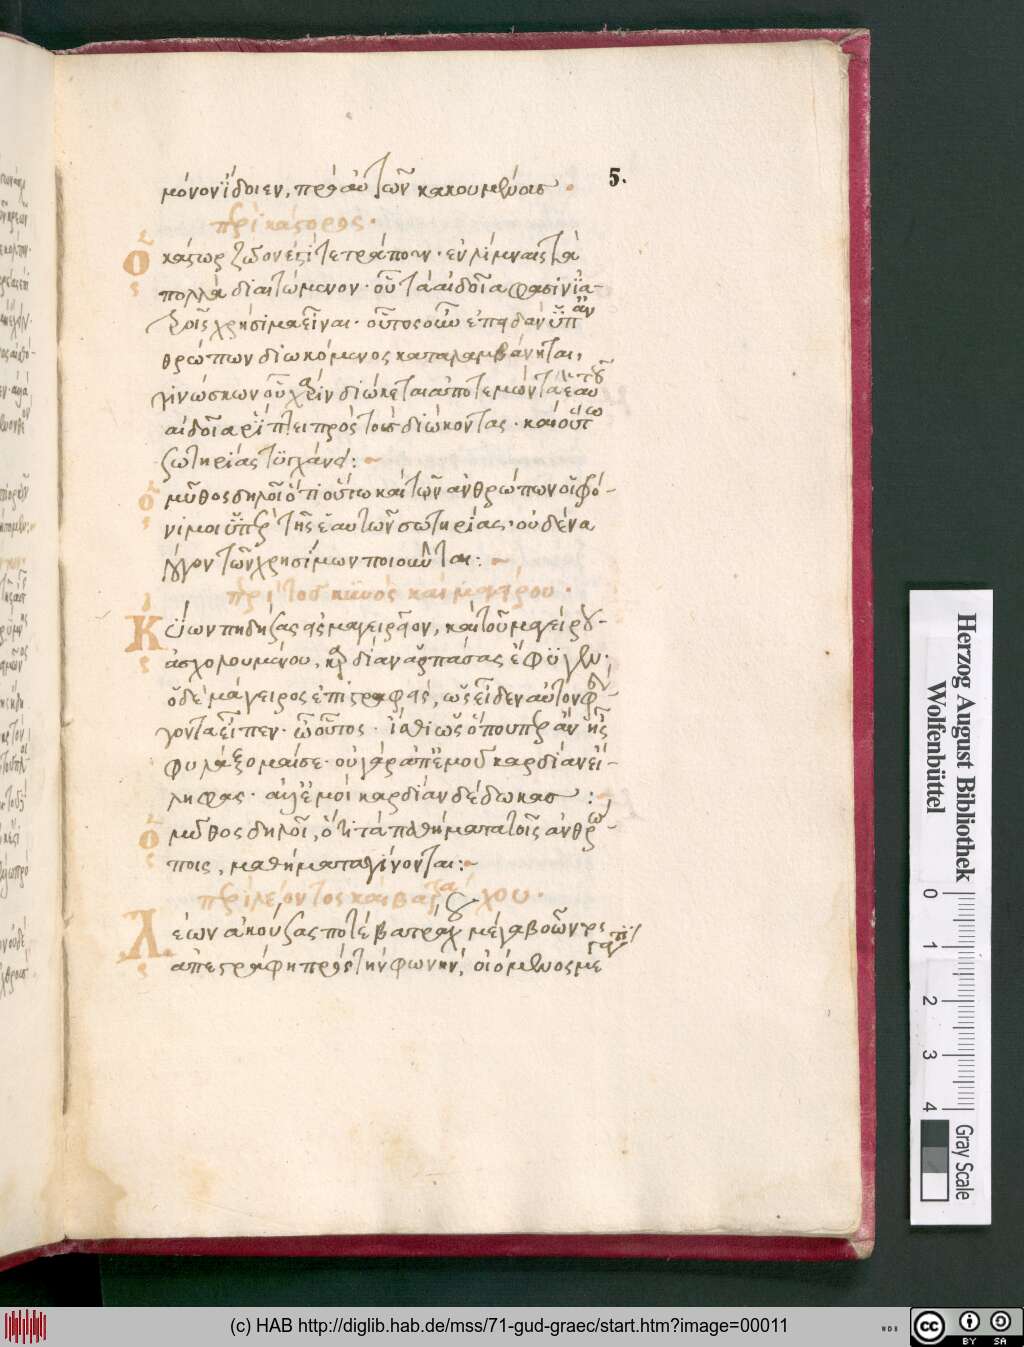 5.
μόνον ἴδοιεν, πρὸ αὐτῶν κακουμένους
περὶ κάστορος.
Ὁ κάστωρ ζῶον ἐστὶ τετράπουν· ἐν λίμναις τὰ
πολλὰ διαιτώμενον· οὗ τὰ αἰδοῖα φασὶν ἰα-
τροῖς χρήσιμα εἶναι· οὗτος οὖν ἐπειδὰν ὑπ' ἀν
θρώπων διωκόμενος καταλαμβάνηται,
γινώσκων οὗ χάριν διώκεται ἀποτεμὼν τὰ ἑαυτοῦ
αἰδοῖα ρίπτει πρὸς τοὺς διώκοντας· καὶ οὕτω
σωτηρίας τυγχάνει:
Ὁ μῦθος δηλοῖ ὅτι οὕτω καὶ τῶν ἀνθρώπων οἱ φρό-
νιμοι ὑπὲρ τῆς ἑαυτῶν σωτηρίας· οὐδένα
λόγον τῶν χρησίμων ποιοῦνται:
περὶ τοῦ κυνὸς καὶ μαγείρου.
Κύων πηδήσας εἰς μαγειρεῖον, καὶ τοῦ μαγείρου
ἀσχολουμένου, καρδίαν ἁρπάσας ἔφυγεν·
ὁ δὲ μάγειρος ἐπιστραφεὶς, ὡς εἶδεν αὐτὸν φεύ-
γοντα εἶπεν· ὦ οὗτος· ἴσθι ὡς ὅπου περ ἂν ᾖς
φυλάξομαί σε· οὐ γὰρ ἀπ' ἐμοῦ καρδίαν εἴ-
ληφας· ἀλλ' ἐμοὶ καρδίαν δέδωκας:
Ὁ μῦθος δηλοῖ, ὅτι τὰ παθήματα τοῖς ἀνθρώ-
ποις, μαθήματα γίνονται:
περὶ λέοντος καὶ βατράχου.
Λέων ἀκούσας ποτὲ βατράχου μέγα βοῶντος
ἀπεστράφη πρὸς τὴν φωνὴν, οἰόμενος μέγα τι
Herzog August Bibliothek
Wolfenbüttel
0 1 2 3 4
Gray Scale
(c) HAB http://diglib.hab.de/mss/71-gud-graec/start.htm?image=00011
WDB
cc BY SA